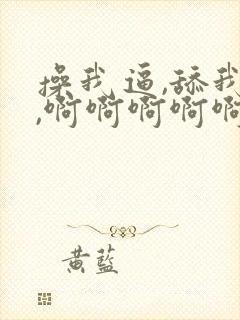 操我逼,舔我
,啊啊啊啊啊
黄蓝